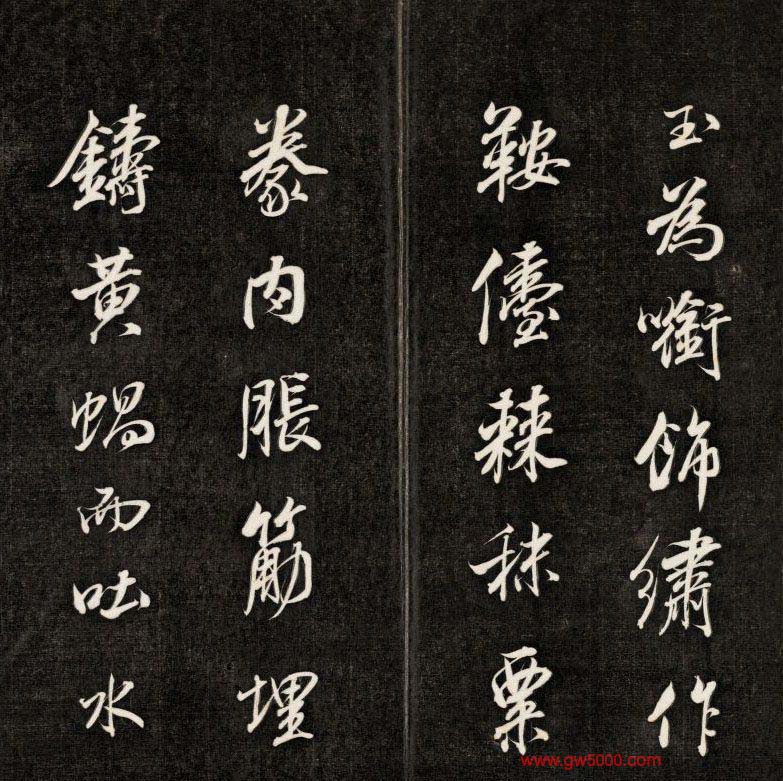 玉為㘅飾繡作
鞍儓棘秣粟
豢肉脹筋埋
鑄黃蝸而吐水
www.gw5000.com